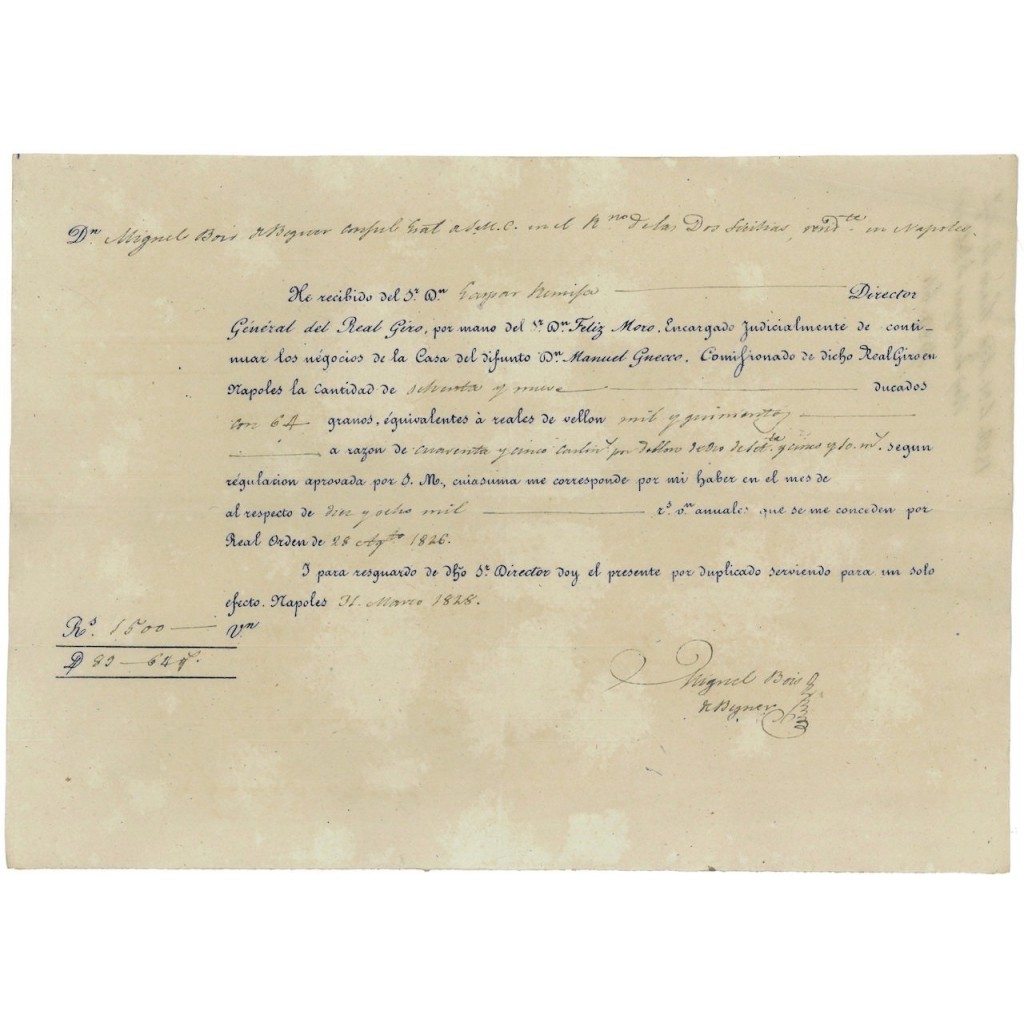 Dn. Miguel Bois de Beguer Consul Gral de S.M.C. en el Rno de las Dos Sicilias, resid.te en Napoles.
He recibido del Sr. Dn. Gaspar Remisa Director
Général del Real Giro, por mano del Sr. Dn. Feliz Moro, Encargado Judicialmente de conti-
nuar los négocios de la Casa del difunto Dn. Manuel Gnecco, Comisionado de dicho Real Giro en
Napoles la Cantidad de ochenta y nueve ducados
con 64 granos, équivalentes à reales de vellon mil y quinientos
a razon de cuarenta y cinco carlin.s por doblon de oro de set.ta y cinco y 10 m.s segun
régulacion aprovada por S. M., cuia suma me corresponde por mi haber en el mes de
al respecto de diez y ocho mil rs. vn. anuales que se me conceden por
Real Orden de 28 Agto 1826.
I para resguardo de dho Sr. Director doy el presente por duplicado serviendo para un solo
efecto. Napoles 31. Marzo 1828.
Rs. 1,500 Vn
D 89 — 64 g.
Miguel Bois
de Beguer